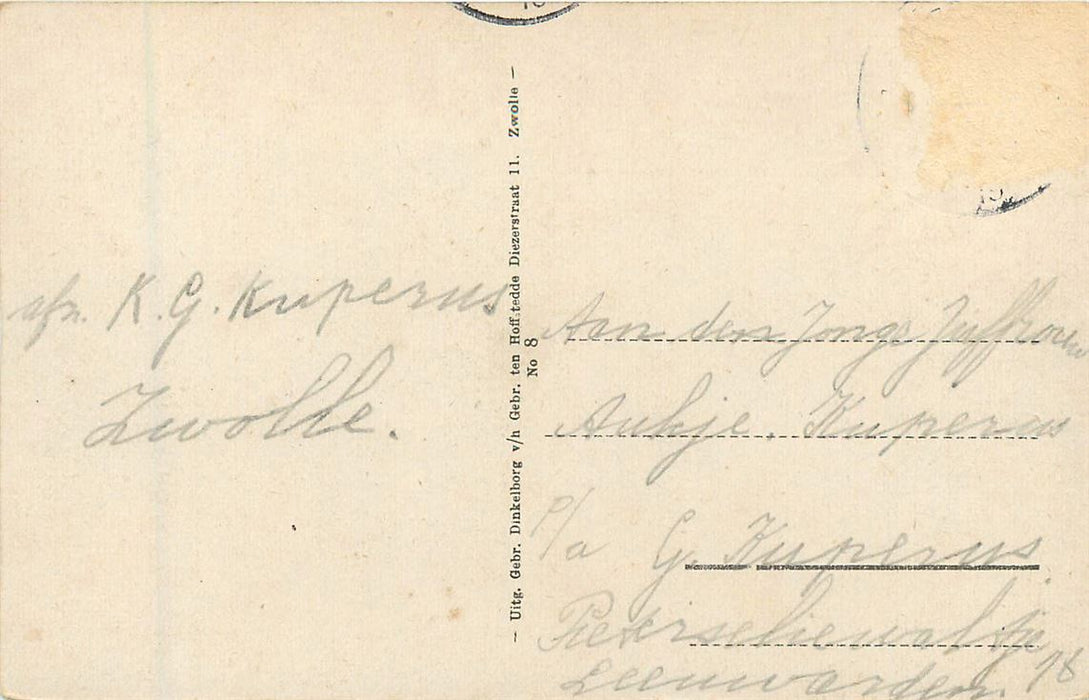 afz. K. G. Kuperus
Zwolle.
— Uitg. Gebr. Dinkelborg v/h Gebr. ten Hoffstedde Diezerstraat 11. Zwolle —
No 8
Aan den Jonge Juffrouw
Aukje. Kuperus
p/a G. Kuperus
Pieterseliewaltje 78
Leeuwarden